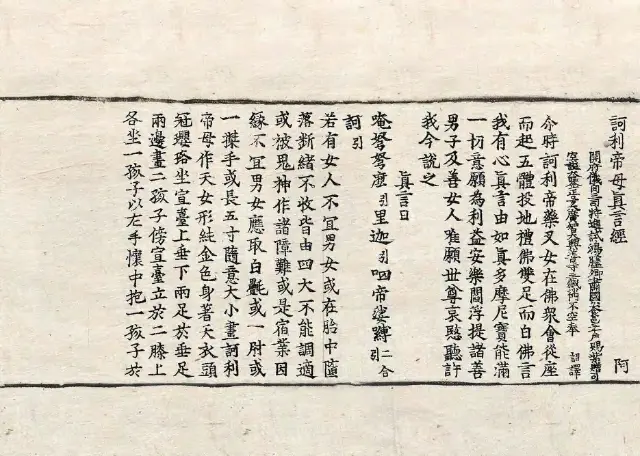 訶利帝母真言經 阿
開府儀同三司特進試鴻臚卿肅國公食邑三千戶賜紫贈司
空謚大鑒正号大廣智大興善寺三藏沙門不空奉 詔譯
尒時訶利帝藥叉女在佛眾會從座
而起五體投地禮佛雙足而白佛言
我有心真言由如真多摩尼寶能滿
一切意願為利益安樂閻浮提諸善
男子及善女人唯願世尊哀愍聽許
我今說之
真言曰
唵弩弩麼引里迦引呬帝娑嚩二合引
訶引
若有女人不宜男女或在胎中墮
落斷緒不收皆由四大不能調適
或被鬼神作諸障難或是宿業因
緣不宜男女應取白㲲或一肘或
一搩手或長五寸隨意大小畫訶利
帝母作天女形純金色身著天衣頭
冠瓔珞坐宣臺上垂下兩足於垂足
兩邊畫二孩子傍宣臺立於二膝上
各坐一孩子以左手懷中抱一孩子於